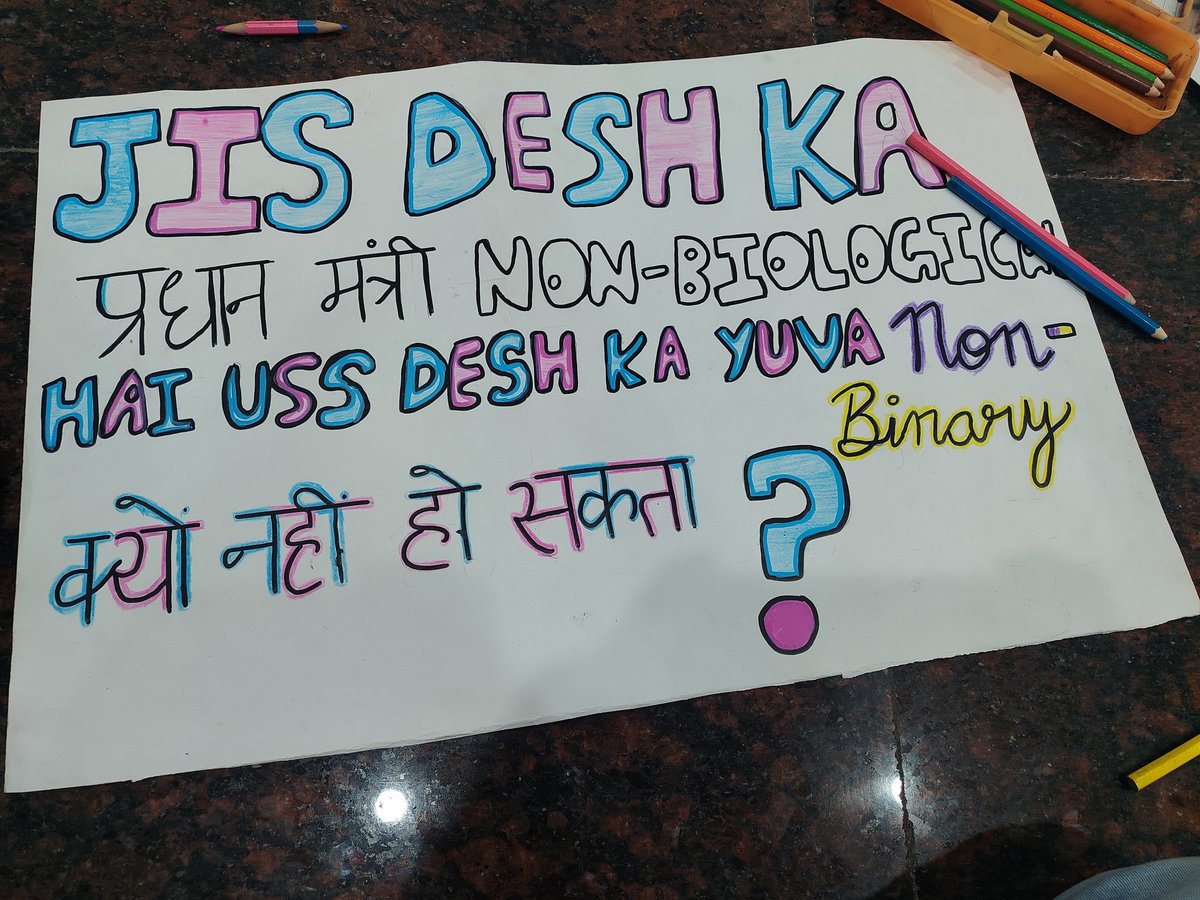 JIS DESH KA
प्रधान मंत्री NON-BIOLOGICAL
HAI USS DESH KA YUVA Non-
Binary
क्यों नहीं हो सकता ?